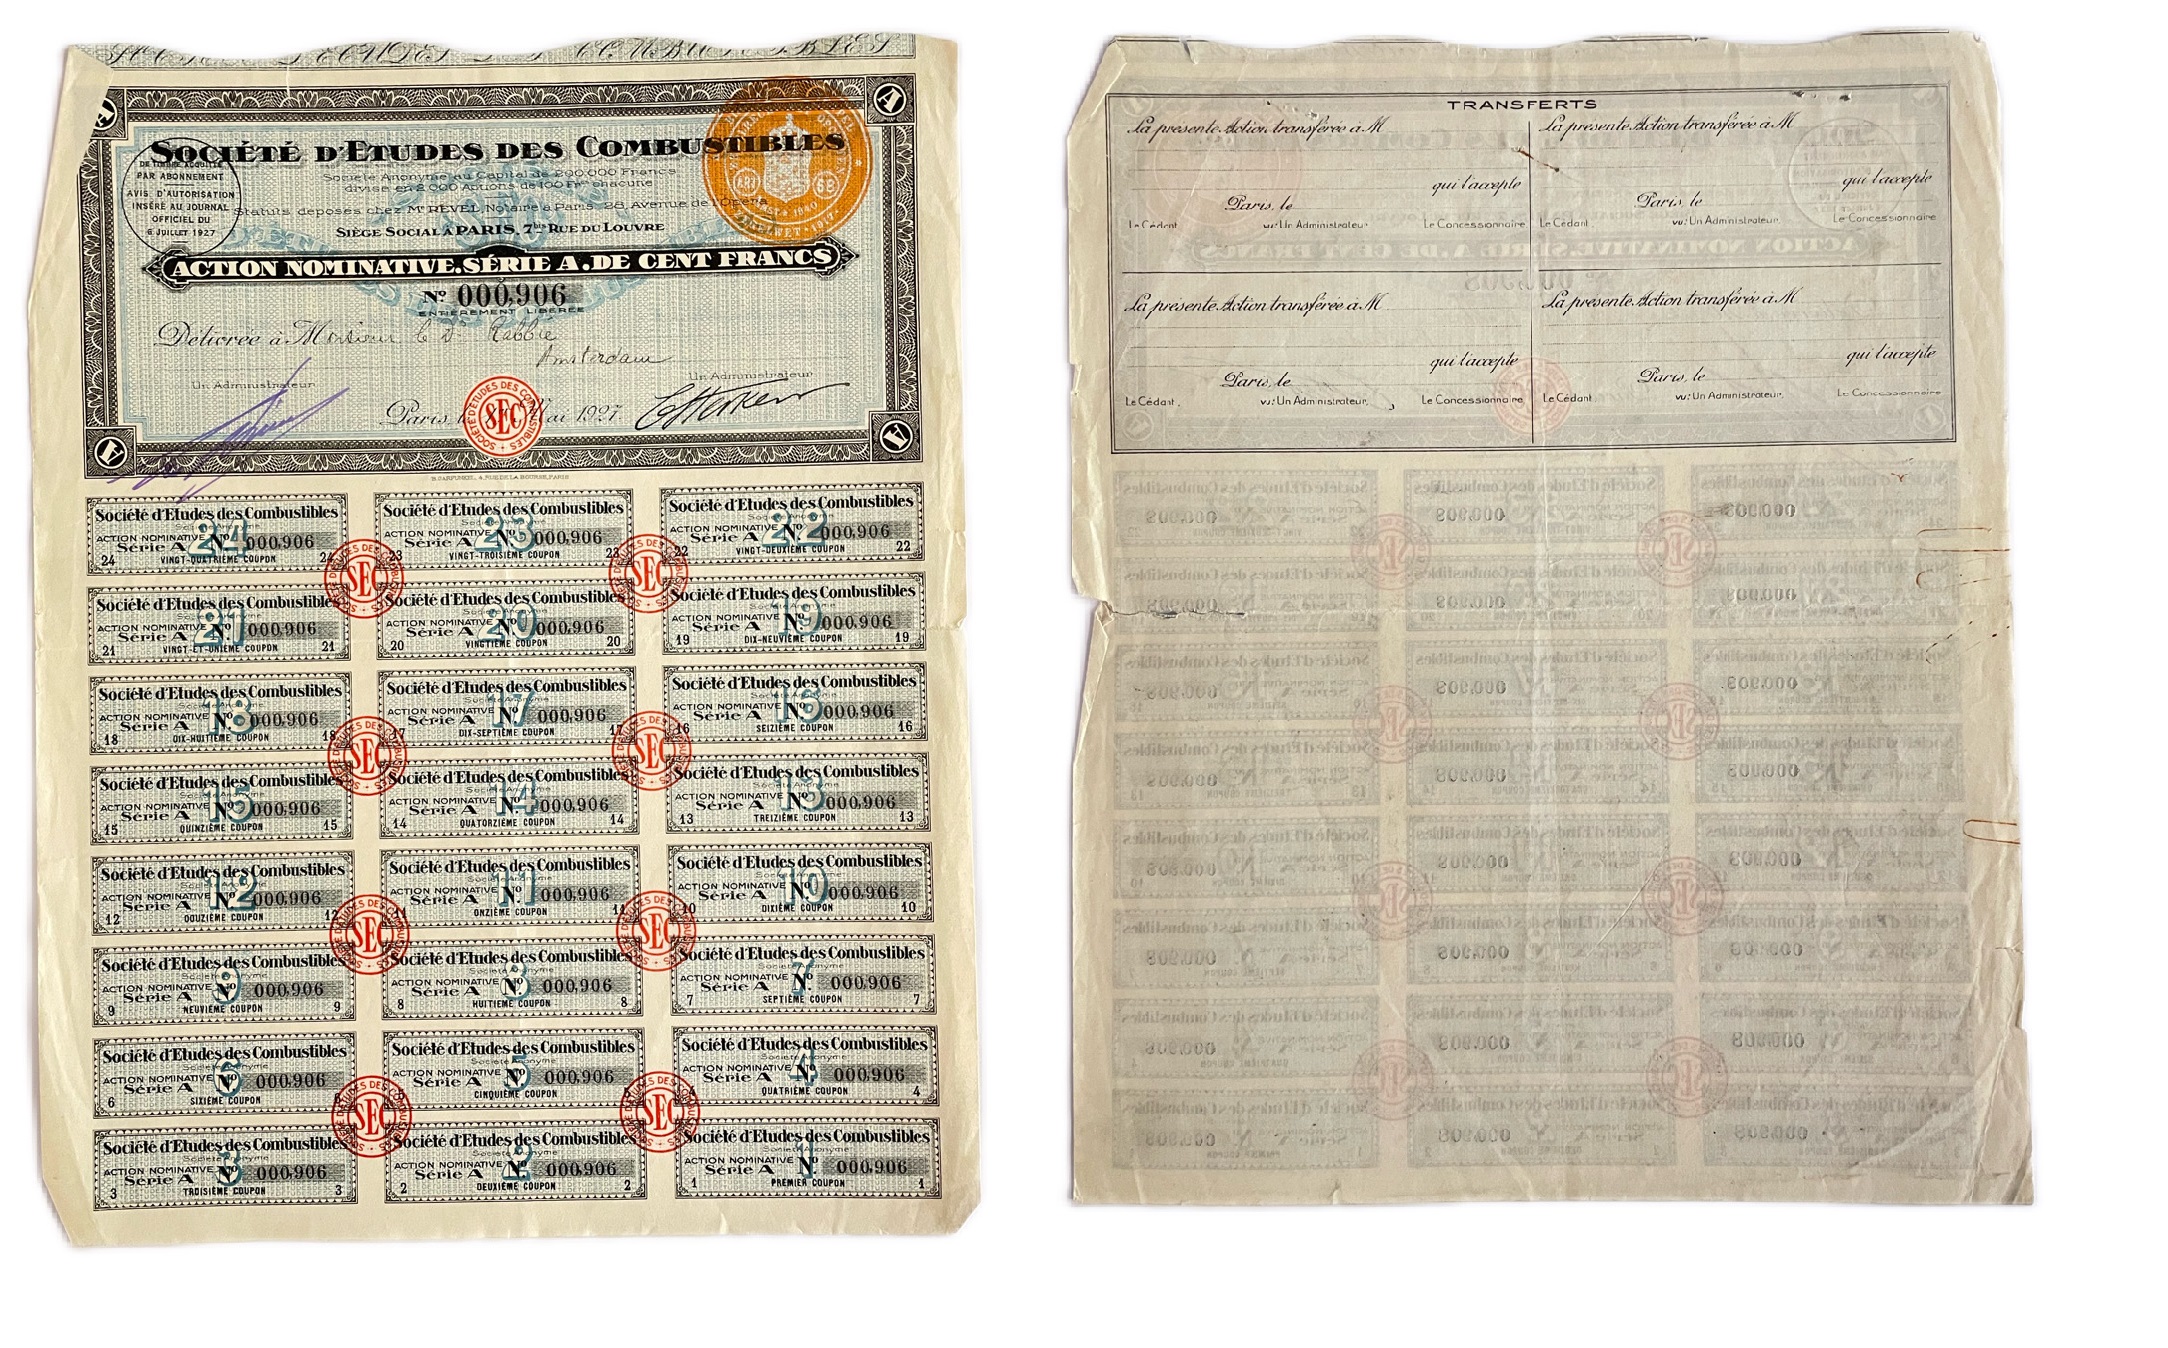 SOCIÉTÉ D'ETUDES DES COMBUSTIBLES
Société Anonyme au Capital de 200.000 Francs
divisé en 2.000 Actions de 100 Frcs chacune
Statuts déposés chez Me REVEL, Notaire à Paris, 28, Avenue de l'Opéra
SIÈGE SOCIAL À PARIS, 7bis RUE DU LOUVRE
DE TIMBRE ACQUITTÉ
PAR ABONNEMENT
AVIS D'AUTORISATION
INSÉRÉ AU JOURNAL
OFFICIEL DU
6 JUILLET 1927
ACTION NOMINATIVE.SÉRIE A.DE CENT FRANCS
No 000,906
ENTIÈREMENT LIBÉRÉE
Délivrée à Monsieur le Dr Rabbie
Amsterdam
Un Administrateur
Un Administrateur
Paris le Mai 1927
SEC
SOCIÉTÉ D'ÉTUDES DES COMBUSTIBLES
B. GARFUNKEL, 4, RUE DE LA BOURSE, PARIS
Société d'Etudes des Combustibles
Société Anonyme
ACTION NOMINATIVE
Série A No 000,906
24 VINGT-QUATRIÈME COUPON 24
Société d'Etudes des Combustibles
Société Anonyme
ACTION NOMINATIVE
Série A No 000,906
23 VINGT-TROISIÈME COUPON 23
Société d'Etudes des Combustibles
Société Anonyme
ACTION NOMINATIVE
Série A No 000,906
22 VINGT-DEUXIÈME COUPON 22
Société d'Etudes des Combustibles
Société Anonyme
ACTION NOMINATIVE
Série A No 000,906
21 VINGT-ET-UNIÈME COUPON 21
Société d'Etudes des Combustibles
Société Anonyme
ACTION NOMINATIVE
Série A No 000,906
20 VINGTIÈME COUPON 20
Société d'Etudes des Combustibles
Société Anonyme
ACTION NOMINATIVE
Série A No 000,906
19 DIX-NEUVIÈME COUPON 19
Société d'Etudes des Combustibles
Société Anonyme
ACTION NOMINATIVE
Série A No 000,906
18 DIX-HUITIÈME COUPON 18
Société d'Etudes des Combustibles
Société Anonyme
ACTION NOMINATIVE
Série A No 000,906
17 DIX-SEPTIÈME COUPON 17
Société d'Etudes des Combustibles
Société Anonyme
ACTION NOMINATIVE
Série A No 000,906
16 SEIZIÈME COUPON 16
Société d'Etudes des Combustibles
Société Anonyme
ACTION NOMINATIVE
Série A No 000,906
15 QUINZIÈME COUPON 15
Société d'Etudes des Combustibles
Société Anonyme
ACTION NOMINATIVE
Série A No 000,906
14 QUATORZIÈME COUPON 14
Société d'Etudes des Combustibles
Société Anonyme
ACTION NOMINATIVE
Série A No 000,906
13 TREIZIÈME COUPON 13
Société d'Etudes des Combustibles
Société Anonyme
ACTION NOMINATIVE
Série A No 000,906
12 DOUZIÈME COUPON 12
Société d'Etudes des Combustibles
Société Anonyme
ACTION NOMINATIVE
Série A No 000,906
11 ONZIÈME COUPON 11
Société d'Etudes des Combustibles
Société Anonyme
ACTION NOMINATIVE
Série A No 000,906
10 DIXIÈME COUPON 10
Société d'Etudes des Combustibles
Société Anonyme
ACTION NOMINATIVE
Série A No 000,906
9 NEUVIÈME COUPON 9
Société d'Etudes des Combustibles
Société Anonyme
ACTION NOMINATIVE
Série A No 000,906
8 HUITIEME COUPON 8
Société d'Etudes des Combustibles
Société Anonyme
ACTION NOMINATIVE
Série A No 000,906
7 SEPTIÈME COUPON 7
Société d'Etudes des Combustibles
Société Anonyme
ACTION NOMINATIVE
Série A No 000,906
6 SIXIÈME COUPON 6
Société d'Etudes des Combustibles
Société Anonyme
ACTION NOMINATIVE
Série A No 000,906
5 CINQUIÈME COUPON 5
Société d'Etudes des Combustibles
Société Anonyme
ACTION NOMINATIVE
Série A No 000,906
4 QUATRIÈME COUPON 4
Société d'Etudes des Combustibles
Société Anonyme
ACTION NOMINATIVE
Série A No 000,906
3 TROISIÈME COUPON 3
Société d'Etudes des Combustibles
Société Anonyme
ACTION NOMINATIVE
Série A No 000,906
2 DEUXIÈME COUPON 2
Société d'Etudes des Combustibles
Société Anonyme
ACTION NOMINATIVE
Série A No 000,906
1 PREMIER COUPON 1
TRANSFERTS
La présente Action transférée à M
qui l'accepte
Paris, le
Le Cédant. vu: Un Administrateur. Le Concessionnaire
La présente Action transférée à M
qui l'accepte
Paris, le
Le Cédant. vu: Un Administrateur. Le Concessionnaire
La présente Action transférée à M
qui l'accepte
Paris, le
Le Cédant. vu: Un Administrateur. Le Concessionnaire
La présente Action transférée à M
qui l'accepte
Paris, le
Le Cédant vu: Un Administrateur. Le Concessionnaire